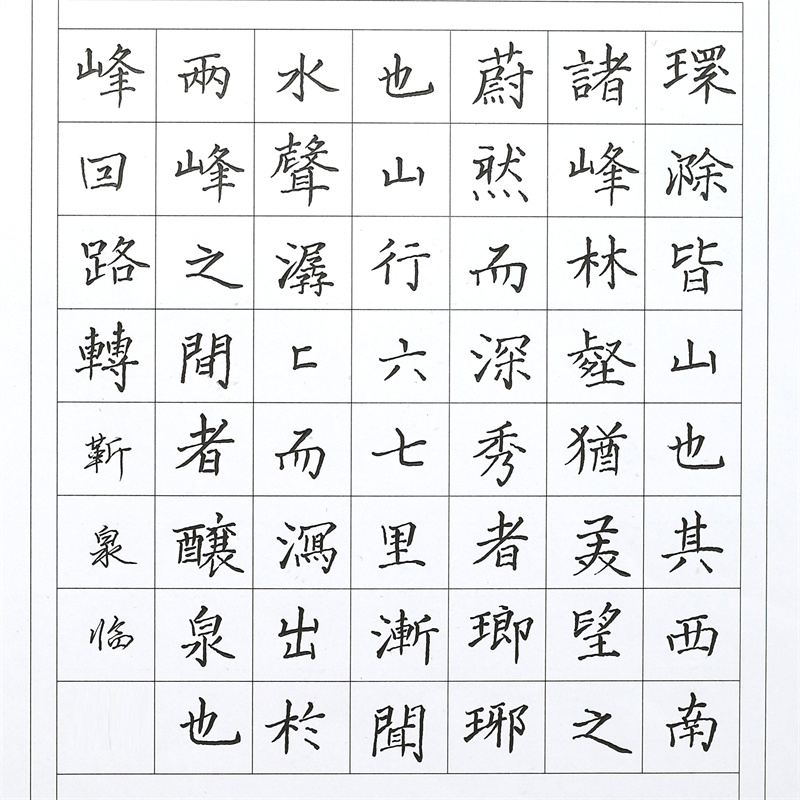 環滁皆山也其西南
諸峰林壑猶美望之
蔚然而深秀者瑯琊
也山行六七里漸聞
水聲潺々而瀉出於
兩峰之間者釀泉也
峰回路轉靳泉临